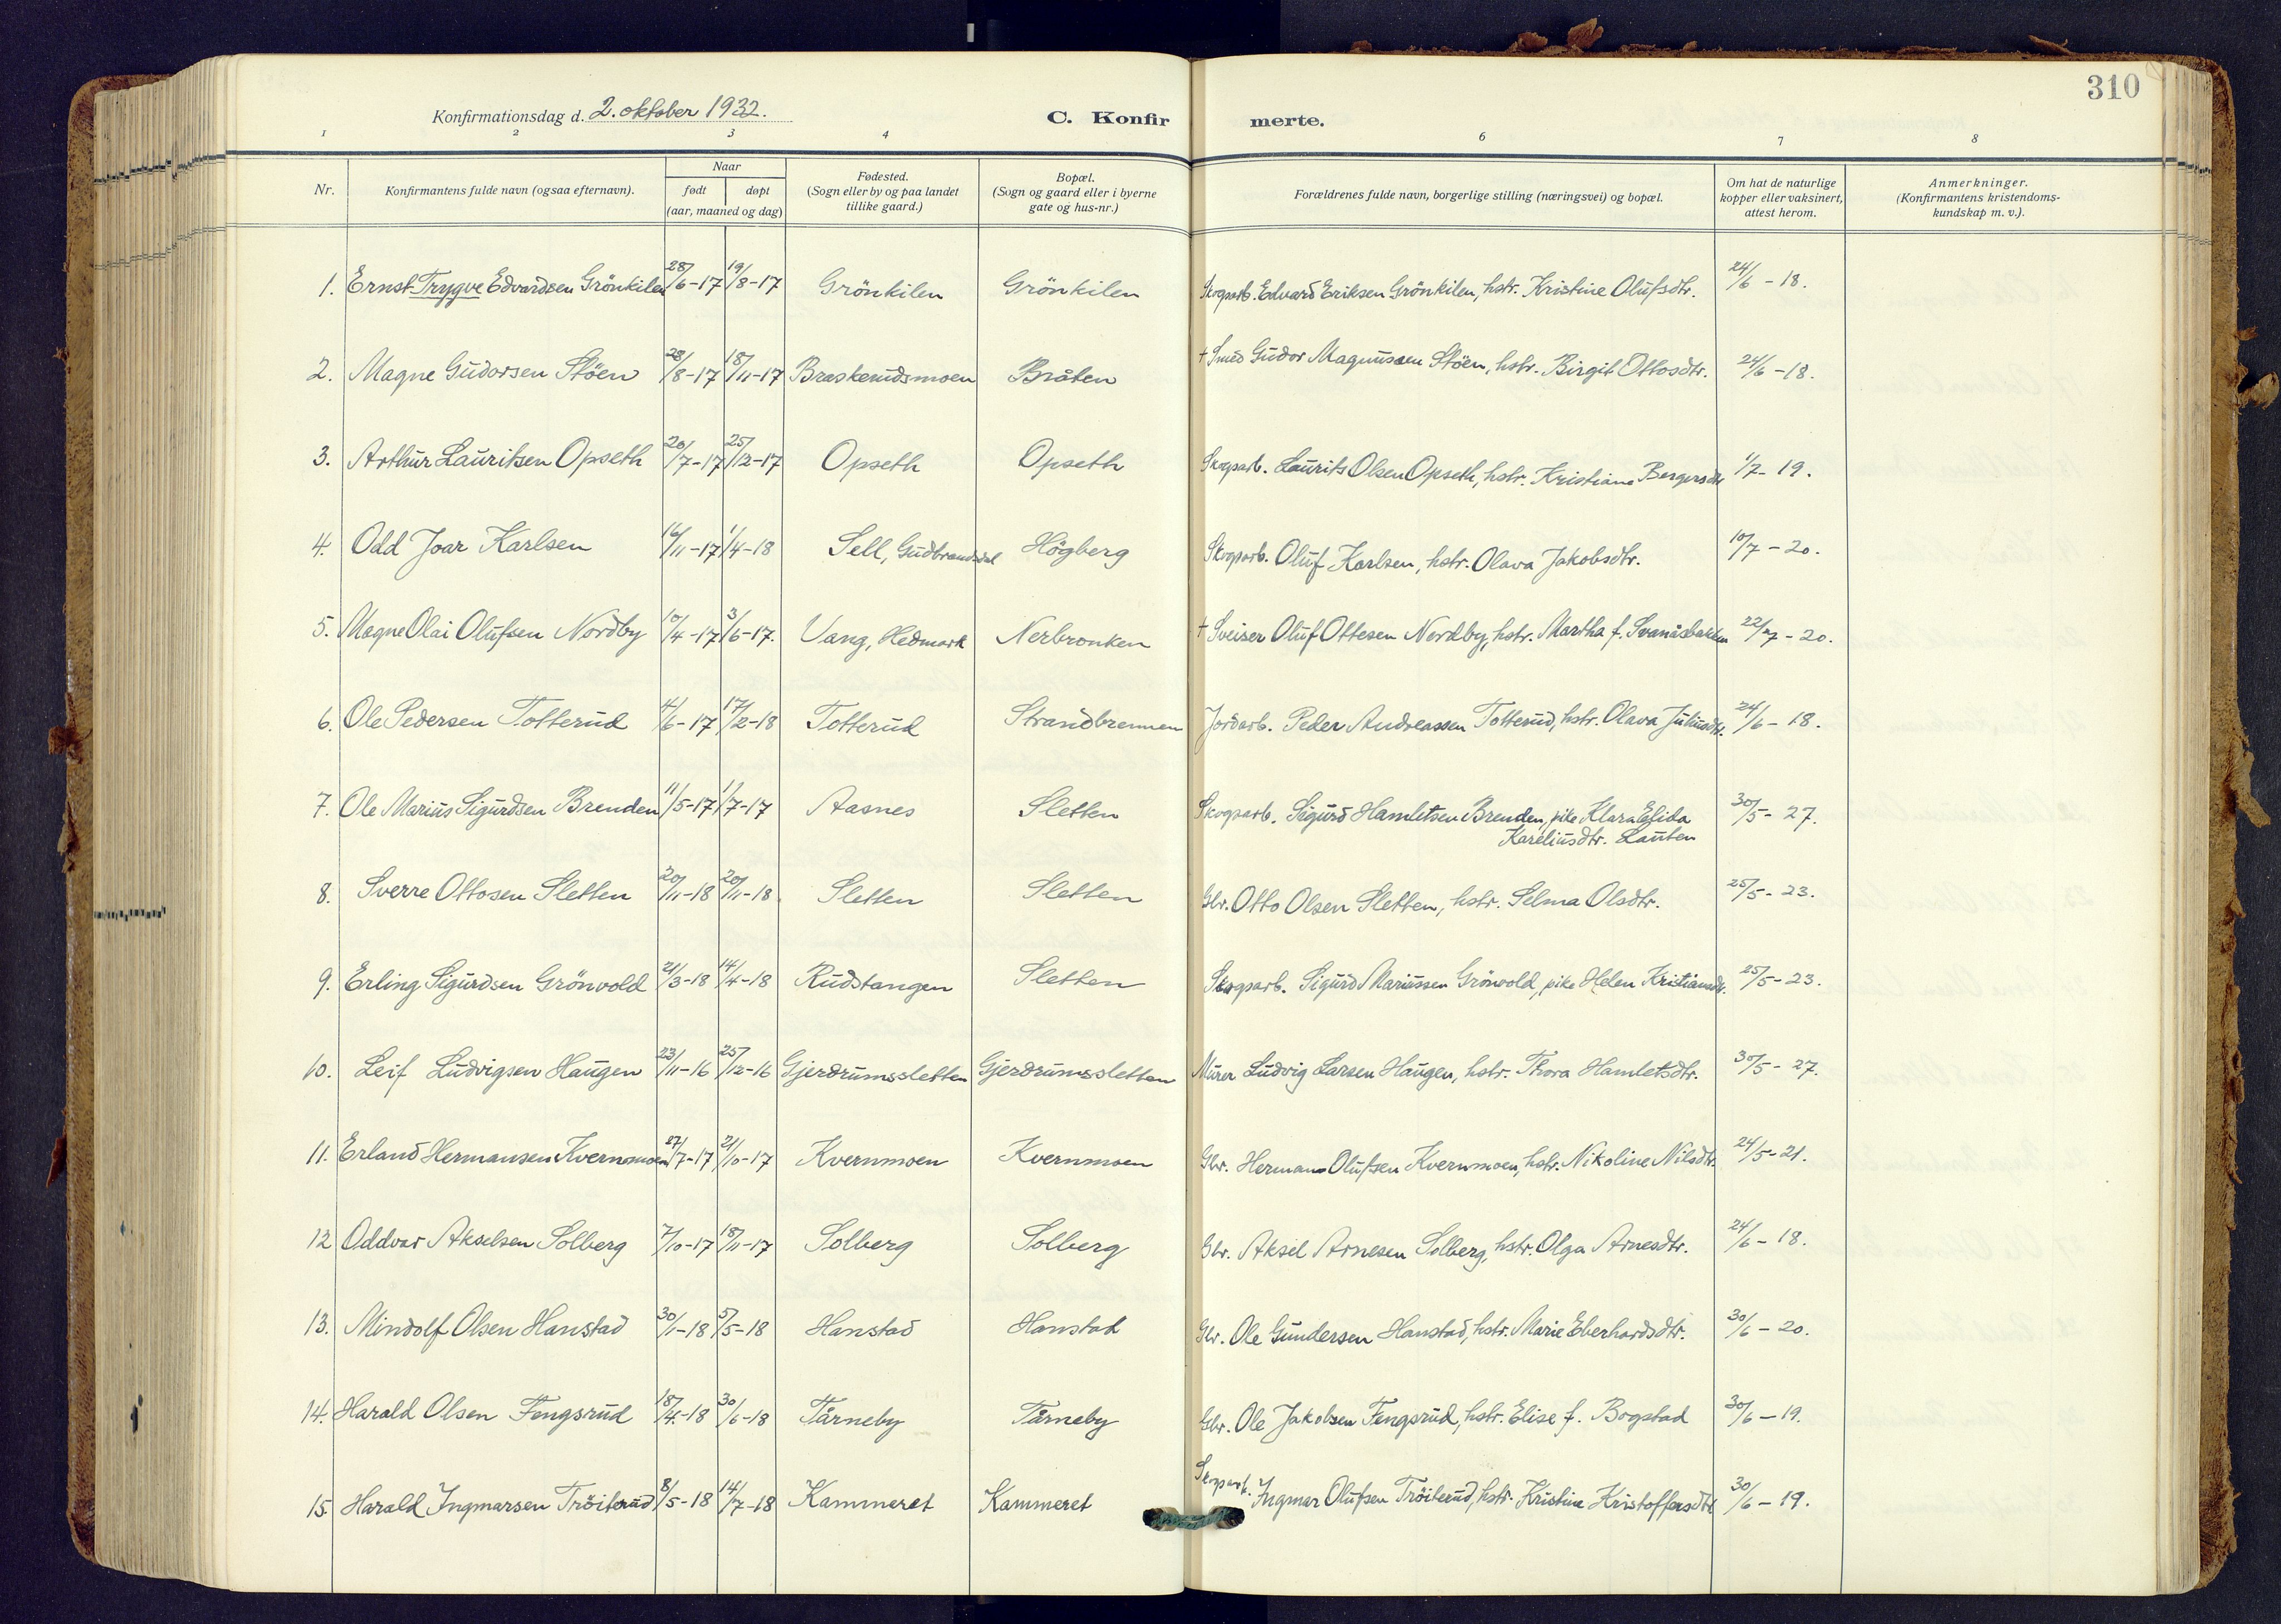 310
Konfirmationsdag d. 2. oktober 1932.
C. Konfirmerte.
1 2 3 4 6 7 8
Nr. Konfirmantens fulde navn (ogsaa efternavn). Naar født døpt (aar, maaned og dag) Fødested. (Sogn eller by og paa landet tillike gaard.) Bopæl. (Sogn og gaard eller i byerne gate og hus-nr.) Forældrenes fulde navn, borgerlige stilling (næringsvei) og bopæl. Om hat de naturlige kopper eller vaksinert, attest herom. Anmerkninger. (Konfirmantens kristendoms-kundskap m. v.).
1. Ernst Trygve Edvardsen Grönkilen 28/6-17 19/8-17 Grönkilen Grönkilen Skogsarb. Edvard Eriksen Grönkilen, hstr. Kristine Olufsdtr. 24/6-18.
2. Magne Gudorsen Stöen 28/8-17 18/11-17 Braskerudsmoen Bråten + Smed Gudor Magnussen Stöen, hstr. Birgit Ottosdtr. 24/6-18.
3. Arthur Lauritsen Opseth 20/7-17 25/12-17 Opseth Opseth Skogsarb. Laurits Olsen Opseth, hstr. Kristiane Bergersdtr 1/7-19.
4. Odd Joar Karlsen 16/11-17 1/4-18 Sell, Gudbrandsdal Högberg Skogsarb. Oluf Karlsen, hstr. Olava Jakobsdtr. 10/7-20.
5. Magne Olai Olufsen Nordby 10/4-17 3/6-17. Vang, Hedmark Nerbronken + Sveiser Oluf Ottesen Nordby, hstr. Martha f. Svanåsbakken 22/7-20.
6. Ole Pedersen Totterud 4/6-17 17/2-18 Totterud Strandbrennen Jordarb. Peder Andreassen Totterud, hstr. Olava Juliusdtr. 24/6-18.
7. Ole Marius Sigurdsen Brenden 11/5-17 1/7-17 Aasnes Sletten Skogsarb. Sigurd Hamletsen Brenden, pike Klara Elida
Kareliusdtr. Lauten 30/5-27.
8. Sverre Ottosen Sletten 20/11-18 20/11-18 Sletten Sletten Gbr. Otto Olsen Sletten, hstr. Selma Olsdtr. 25/5-23.
9. Erling Sigurdsen Grönvold 21/3-18 14/4-18 Rudstangen Sletten Skogsarb. Sigurd Mariussen Grönvold, pike Helen Kristiansdtr. 25/5-23.
10. Leif Ludvigsen Haugen 23/11-16 25/12-16 Gjerdrumssletten Gjerdrumssletten Murer Ludvig Larsen Haugen, hstr. Thora Hamletsdtr. 30/5-27.
11. Erland Hermansen Kvernmoen 27/7-17 21/10-17 Kvernmoen Kvernmoen Gbr. Herman Olufsen Kvernmoen, hstr. Nikoline Nilsdtr. 24/5-21.
12 Oddvar Akselsen Solberg 7/10-17 18/11-17 Solberg Solberg Gbr. Aksel Arnesen Solberg, hstr. Olga Arnesdtr. 24/6-18.
13. Mindolf Olsen Hanstad 30/1-18 5/5-18 Hanstad Hanstad Gbr. Ole Gundersen Hanstad, hstr. Marie Eberhardsdtr. 30/6-20.
14. Harald Olsen Fengsrud 18/4-18 30/6-18 Tårneby Tårneby Gbr. Ole Jakobsen Fengsrud, hstr. Elise f. Bogstad 30/6-19.
15. Harald Ingmarsen Tröiterud 8/5-18 14/7-18 Kammeret Kammeret Skogsarb. Ingmar Olufsen Tröiterud, hstr. Kristine Kristoffersdtr 30/6-19.